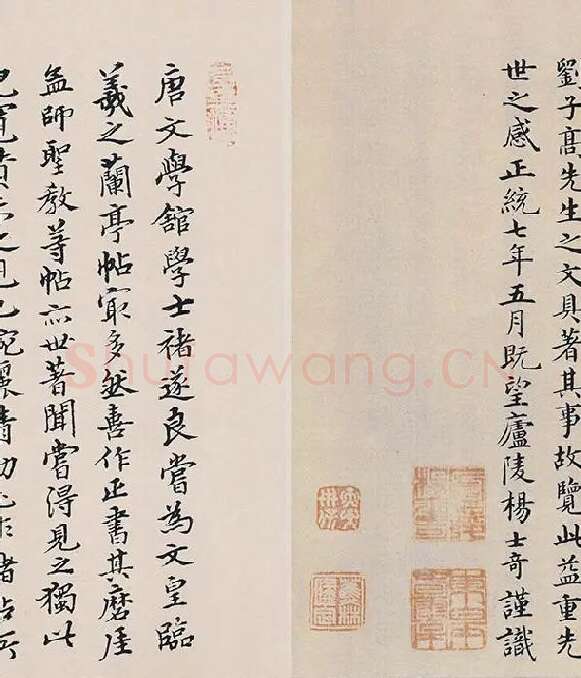 劉子髙先生之文具著其事故覽此益重先
世之感正統七年五月既望廬陵楊士奇謹識
唐文學館學士褚遂良嘗為文皇臨
羲之蘭亭帖冣多然善作正書其磨厓
孟師聖教等帖亦世著聞嘗得見之獨此
Shufawang.CN